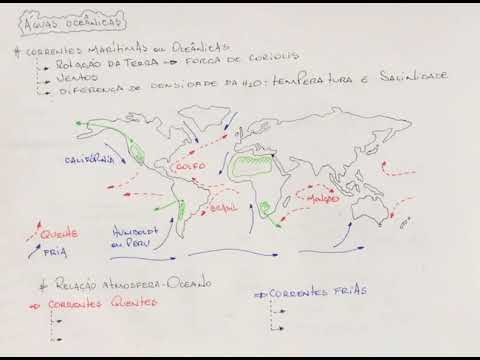 ÁGUAS OCEÂNICAS
* CORRENTES MARÍTIMAS OU OCEÂNICAS
ROTAÇÃO DA TERRA → FORÇA DE CORIOLIS
VENTOS
DIFERENÇA DE DENSIDADE DA H2O: TEMPERATURA E SALINIDADE
CALIFÓRNIA
GOLFO
BRASIL
MONÇÃO
HUMBOLDT
OU PERU
QUENTE
FRIA
* RELAÇÃO ATMOSFERA-OCEANO
⇒ CORRENTES QUENTES
⇒ CORRENTES FRIAS